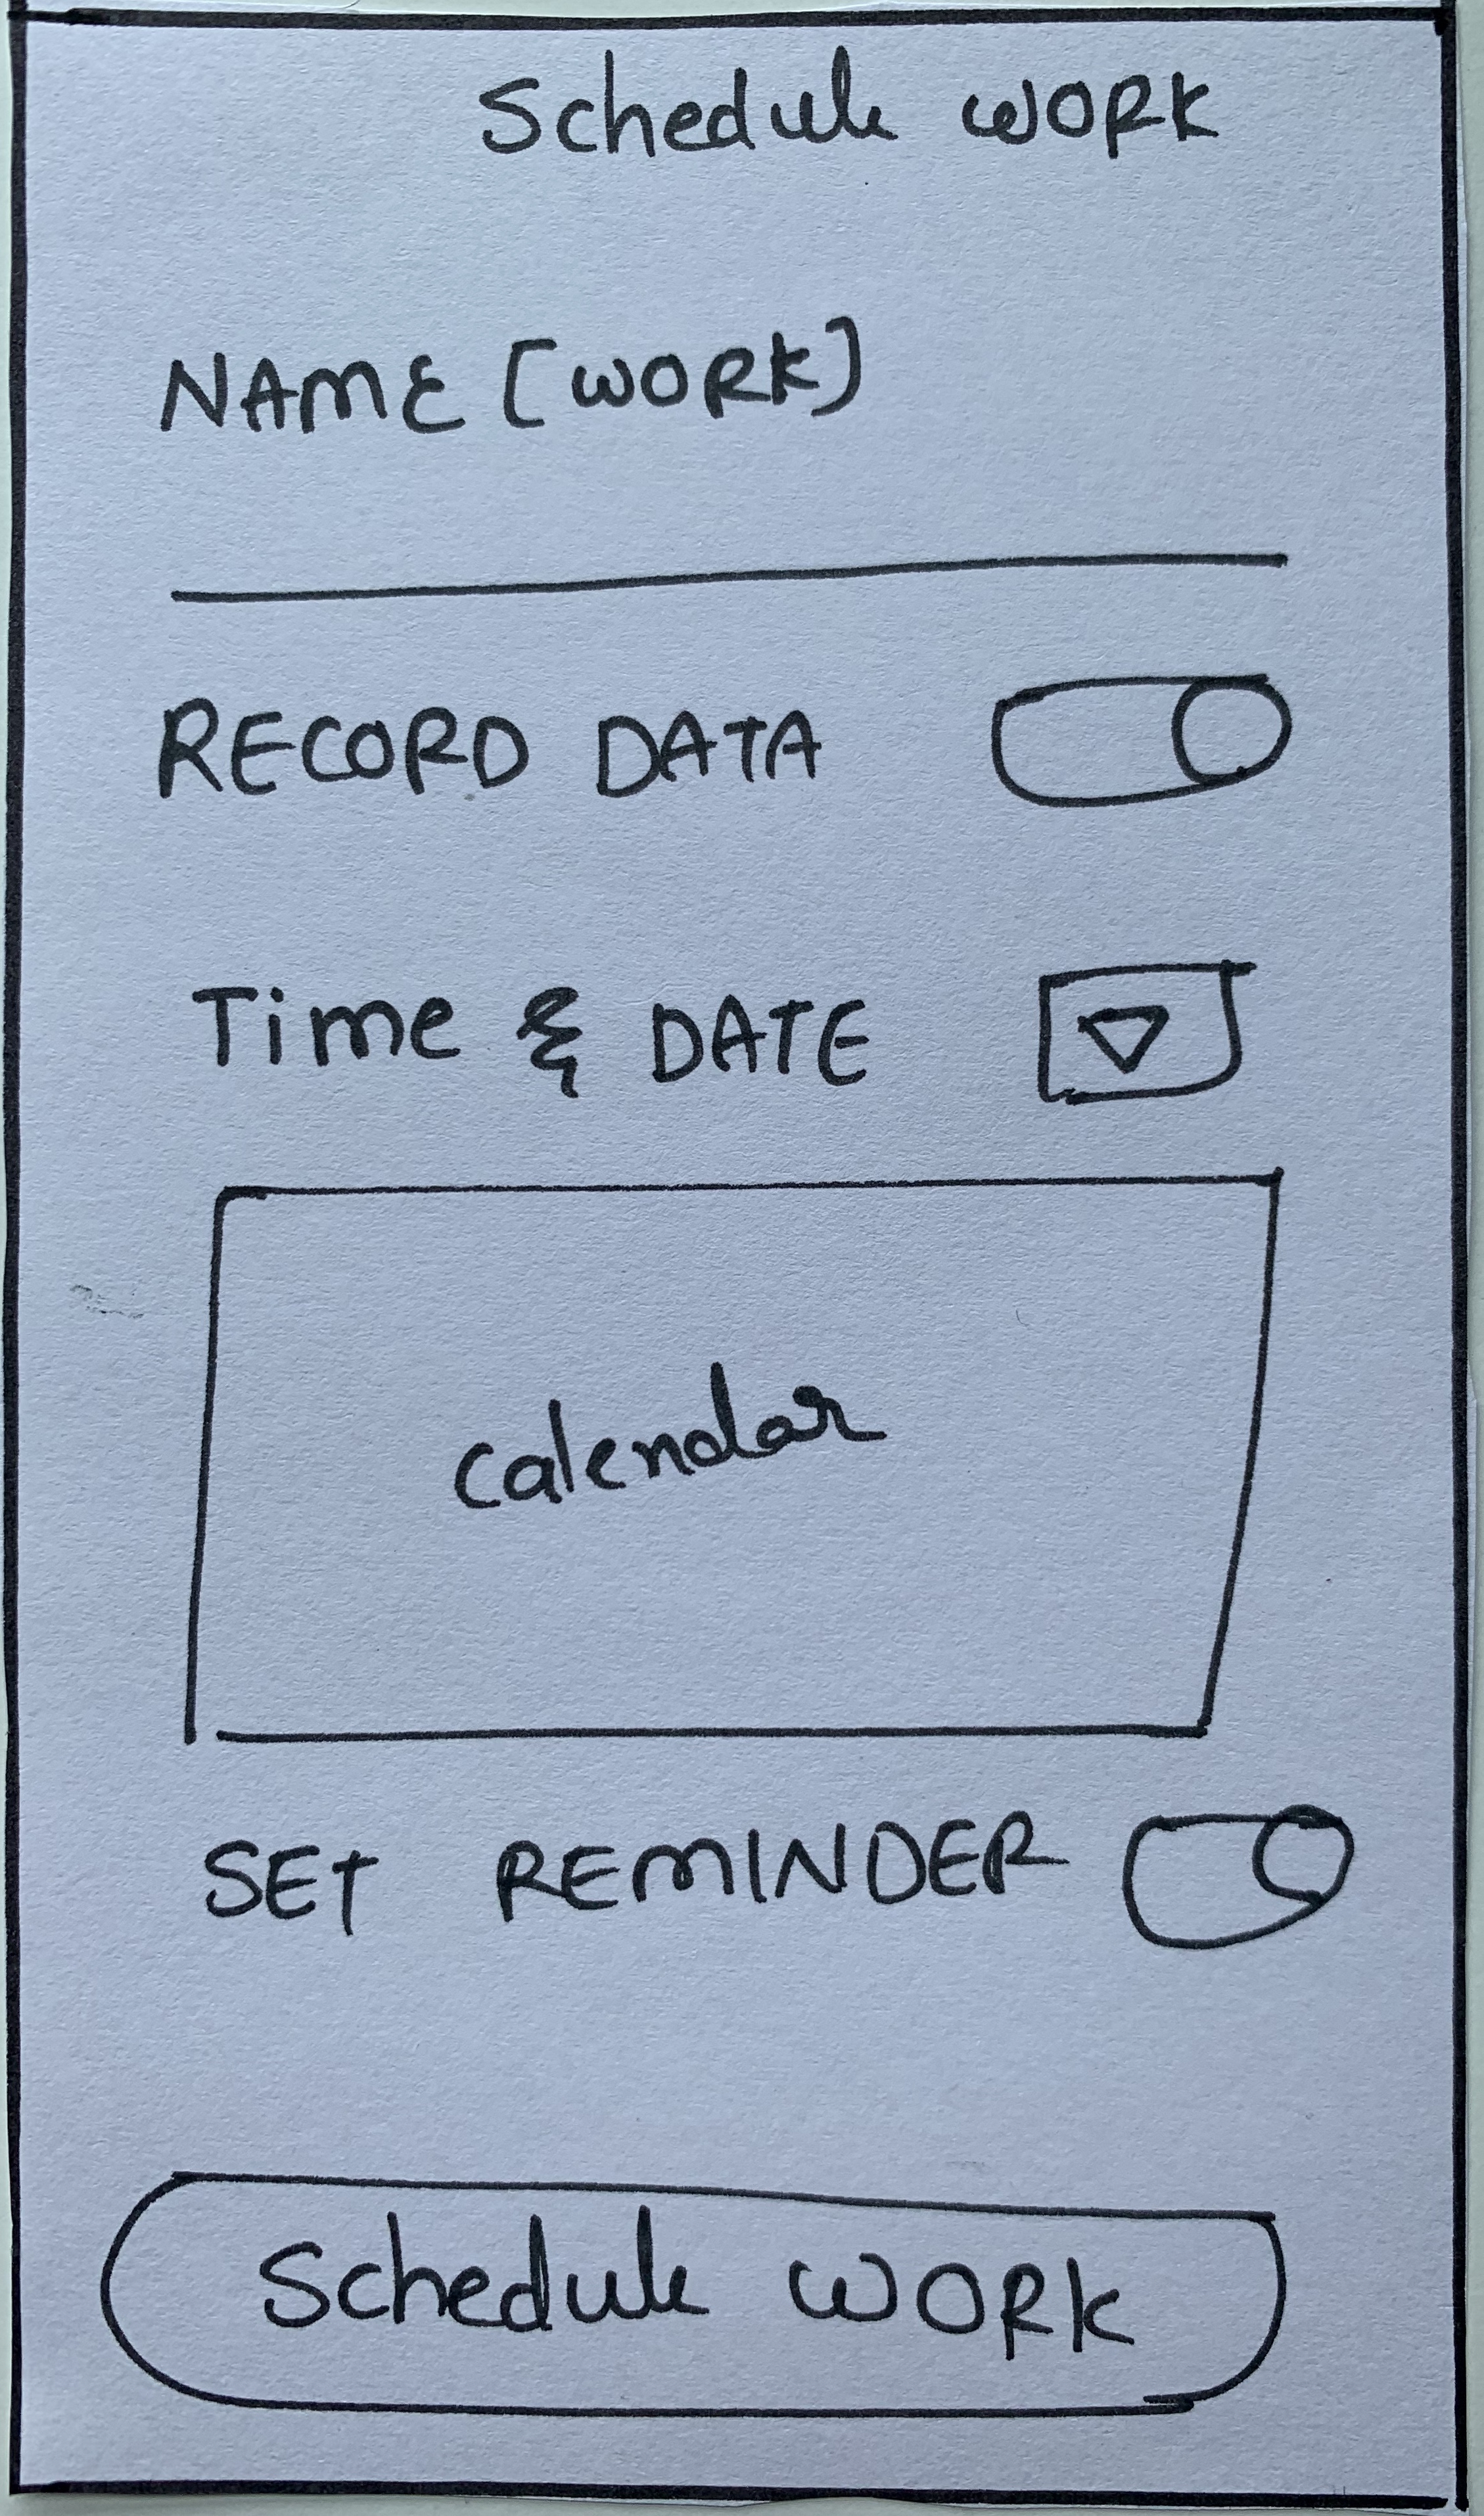 Schedule WORK
NAME [WORK]
RECORD DATA
Time & DATE
Calendar
SET REMINDER
Schedule WORK